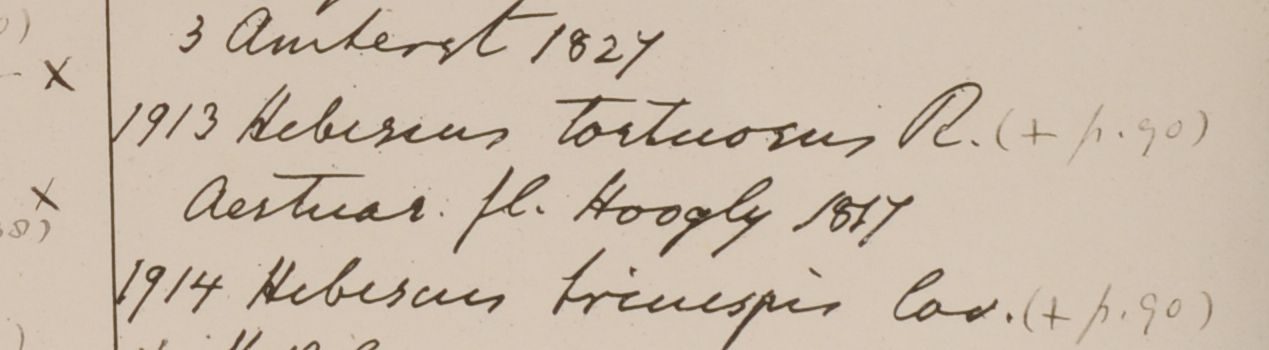 3 Amherst 1827
1913 Hibiscus tortuosus R. (+ p. 90)
Aestuar. fl. Hoogly 1817
1914 Hibiscus Cav. (+ p. 90)